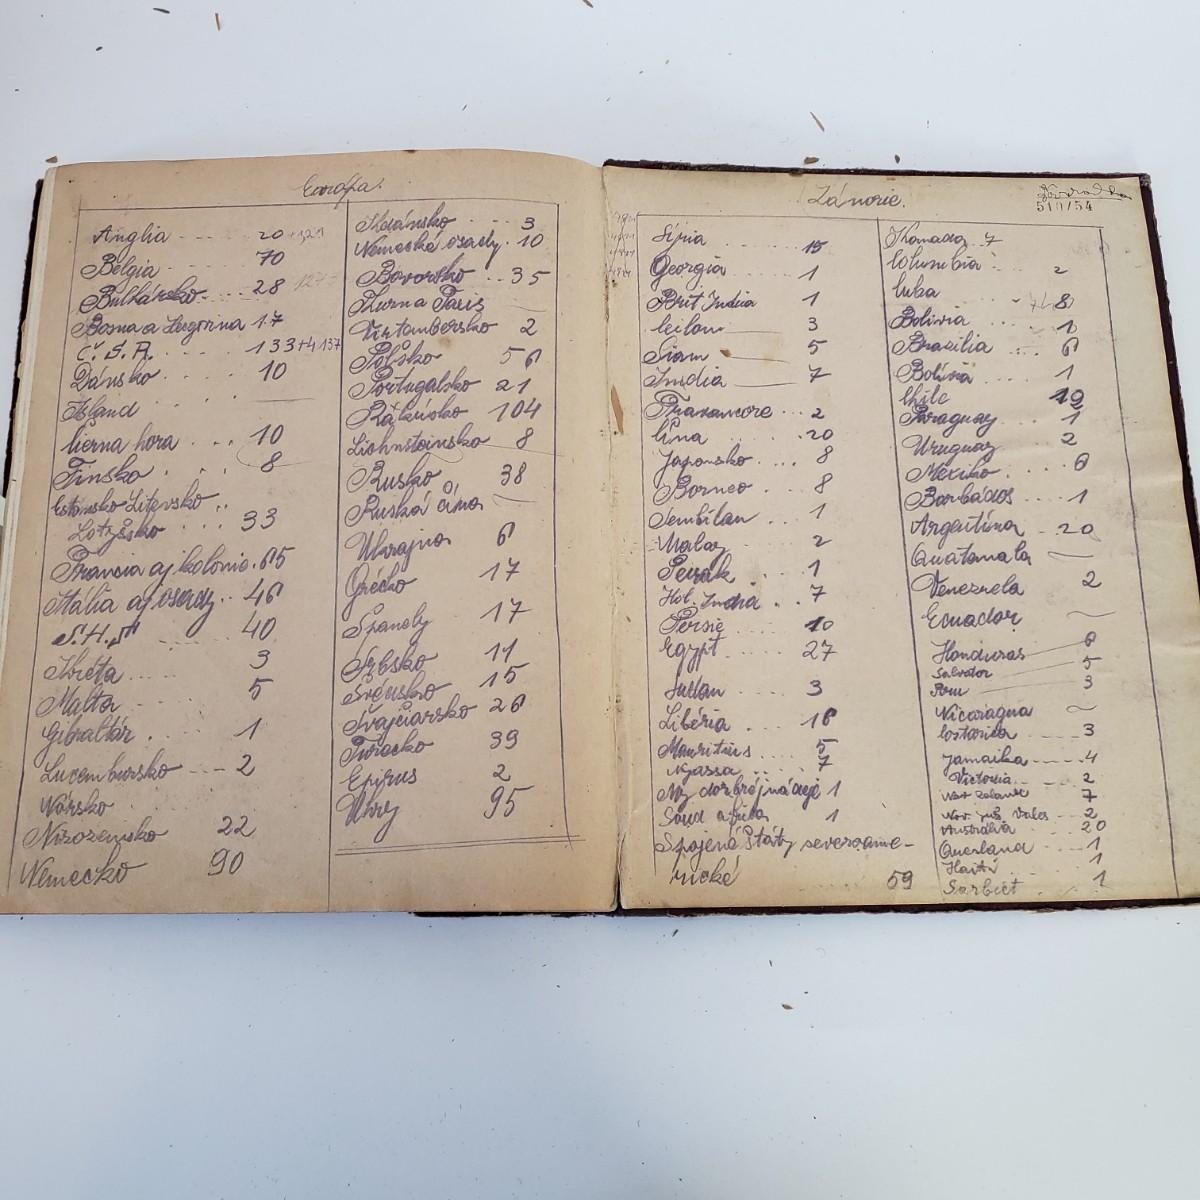 Európa.
Anglia 20 +121
Belgia 70
Bulhársko 28
Bosna a Hrcgovina 17
Č. S. R. 133+4 137
Dánsko 10
Island —
Čierna hora 10
Finsko 8
Estonsko Litevsko
Lotyšsko 33
Francia aj kolonie 65
Itália aj osady 46
S.H.S 40
Kréta 3
Malta 5
Gibraltár 1
Lucembursko 2
Nórsko
Nizozemsko 22
Nemecko 90
Gdánsko 3
Nemecké osady 10
Bavorsko 35
Thurn a Taxis —
Virtembersko 2
Polsko 56
Portugalsko 21
Rakúsko 104
Lichnštainsko 8
Rusko 38
Ruská čína —
Ukrajna 6
Grécko 17
Španely 17
Srbsko 11
Švédsko 15
Švajčiarsko 26
Turecko 39
Epirus 2
Uhry 95
Zámorie.
510/54
Siria 15
Georgia 1
Brit India 1
Ceilon 3
Siam 5
India 7
Travancore 2
Čína 20
Japonsko 8
Borneo 8
Sembilan 1
Malay 2
Perak 1
Hol. India 7
Persie 10
Egypt 27
Sudan 3
Libéria 16
Mauritius 5
Nyassa 7
Mys dobrej nádeje 1
Soud afrika 1
Spojené Státy severoame-
rické 59
Kanada 7
Columbia 2
Cuba 8
Bolivia 1
Brazilia 6
Bolívia 1
Chile 19
Paraguay 1
Uruguay 2
Mexiko 6
Barbádos 1
Argentína 20
Quatemala —
Venezuela 2
Ecuador —
Honduras 6
Salvator 5
Peru 3
Nicaragua —
Costarica 3
Jamaika 4
Victoria 2
Nov Zeland 7
Nov. juž. Vales 2
Australia 20
Queisland 1
Haiti 1